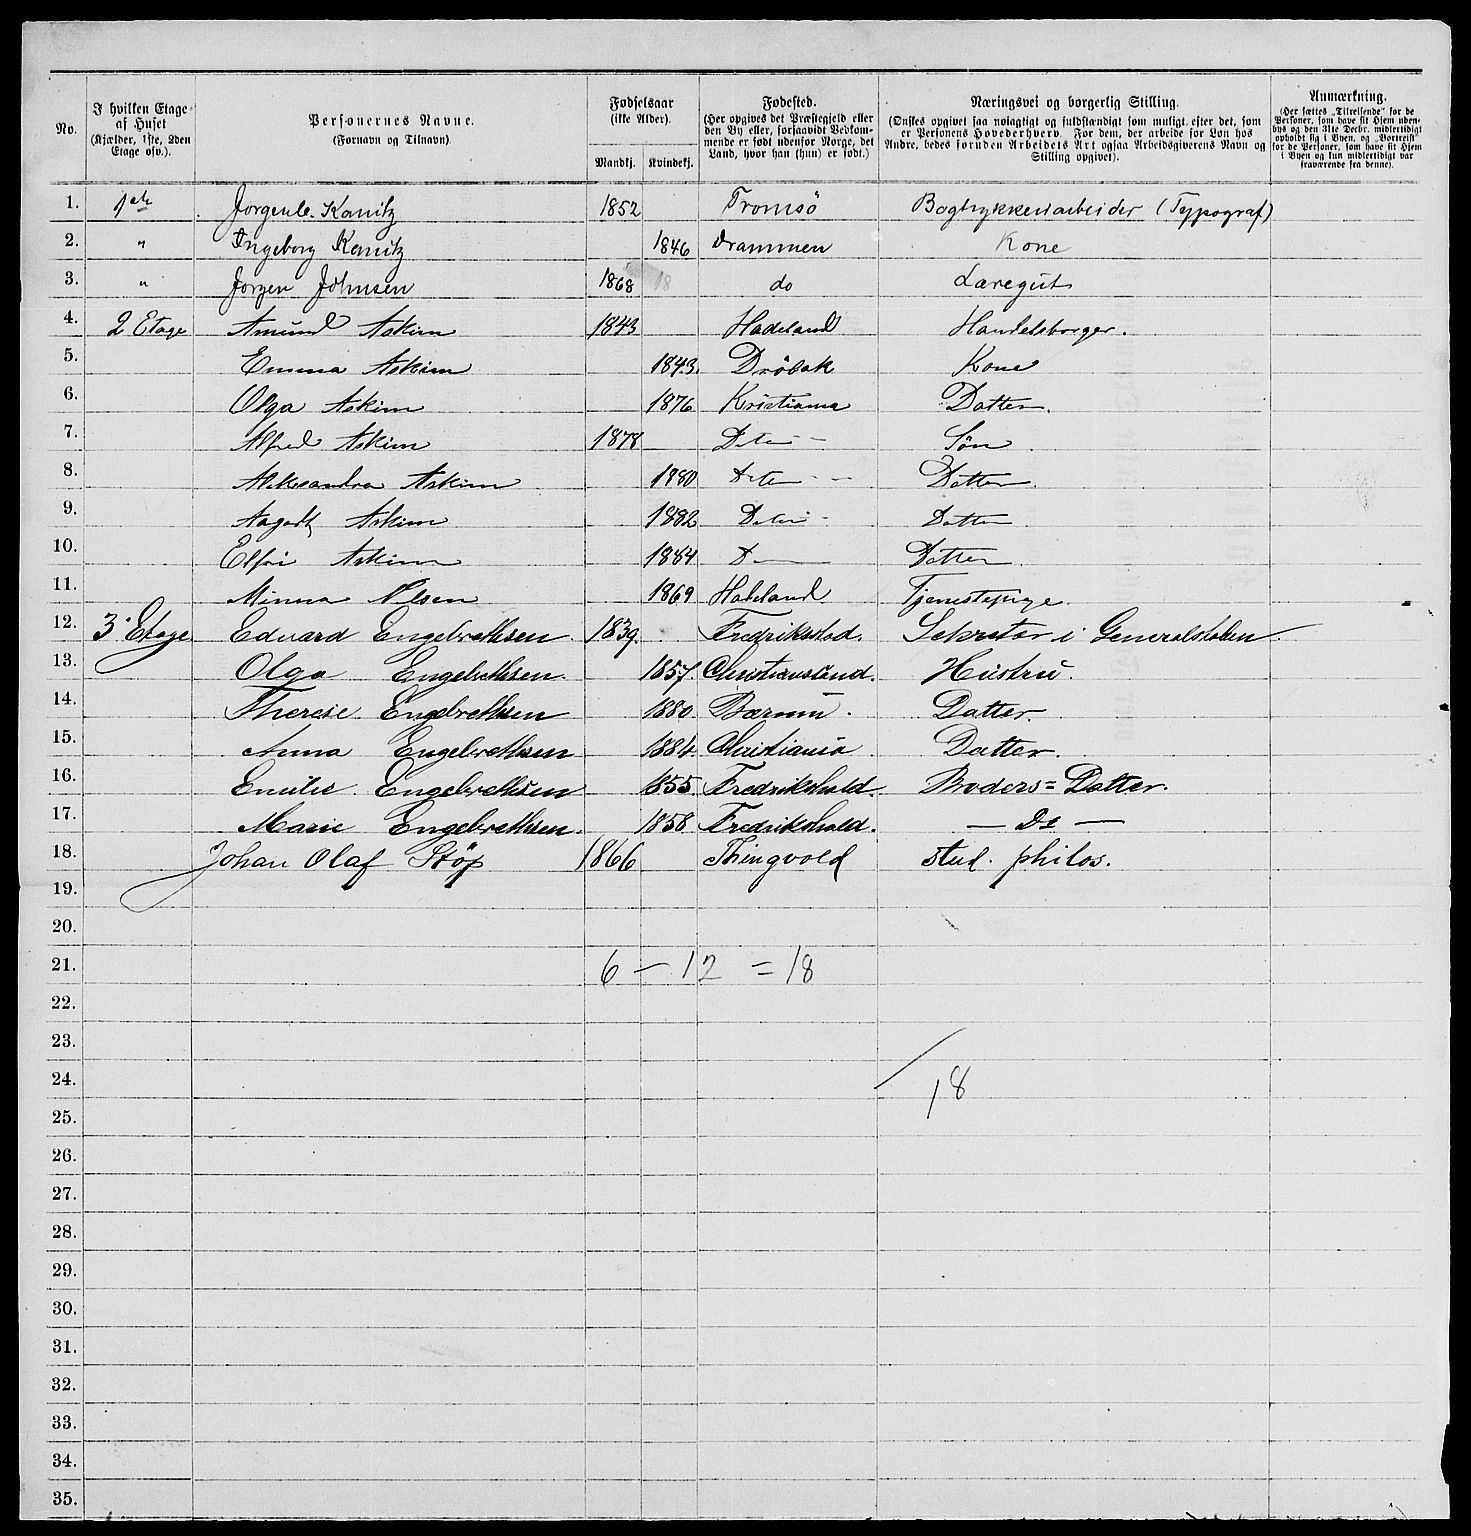 No.
I hvilken Etage af Huset (Kjælder, 1ste, 2den Etage osv.).
Personernes Navne. (Fornavn og Tilnavn)
Fødselsaar (ikke Alder).
Mandkj. Kvindekj.
Fødested. (Her opgives det Præstegjeld eller den By eller, forsaavidt Vedkommende er født udenfor Norge, det Land, hvor han (hun) er født.)
Næringsvei og borgerlig Stilling. (Ønskes opgivet saa nøiagtigt og fuldstændigt som muligt, efter det, som er Personens Hovederhverv. For dem, der arbeide for Løn hos Andre, bedes foruden Arbeidets Art ogsaa Arbeidsgiverens Navn og Stilling opgivet).
Anmærkning. (Her sættes „Tilreisende“ for de Personer, som have sit Hjem udenbys og den 31te Decbr. midlertidigt opholdt sig i Byen, og „Bortreist“ for de Personer, som have sit Hjem i Byen og kun midlertidigt var fraværende fra denne).
1. 1ste Jørgen C. Kanitz 1852 Tromsö Bogtrykkeriarbeider (Typograf)
2. " Ingeborg Kanitz 1846 Drammen Kone
3. " Jørgen Johnsen 1868 18 do Læregut
4. 2 Etage Amund Askim 1843 Hadeland Handelsborger.
5. Emma Askim 1843. Dröbak Kone
6. Olga Askim 1876 Kristiania Datter.
7. Alfred Askim 1878 Søn
8. Aleksandra Askim 1880 Datter
9. Askim 1882 Datter
10. Askim 1884 D Datter
11. Minna Olsen 1869 Hadeland. Tjenestepige
12. 3 Etage Edvard Engebrethsen 1839. Fredriksstad. Sekretær i Generalstaben
13. Olga Engebrethsen 1857. Christianssand. Hustru.
14. Therese Engebrethsen 1880. Bærum. Datter.
15. Anna Engebrethsen 1884. Christiania Datter.
16. Emilie Engebrethsen 1855. Fredrikshald. Broders=Datter.
17. Marie Engebrethsen. 1858. Fredrikshald. — Do —
18. Johan Olaf Støp 1866 Thingvold stud. philos.
19.
20.
21. 6 — 12 = 18
22.
23.
24. 18
25.
26.
27.
28.
29.
30.
31.
32.
33.
34.
35.